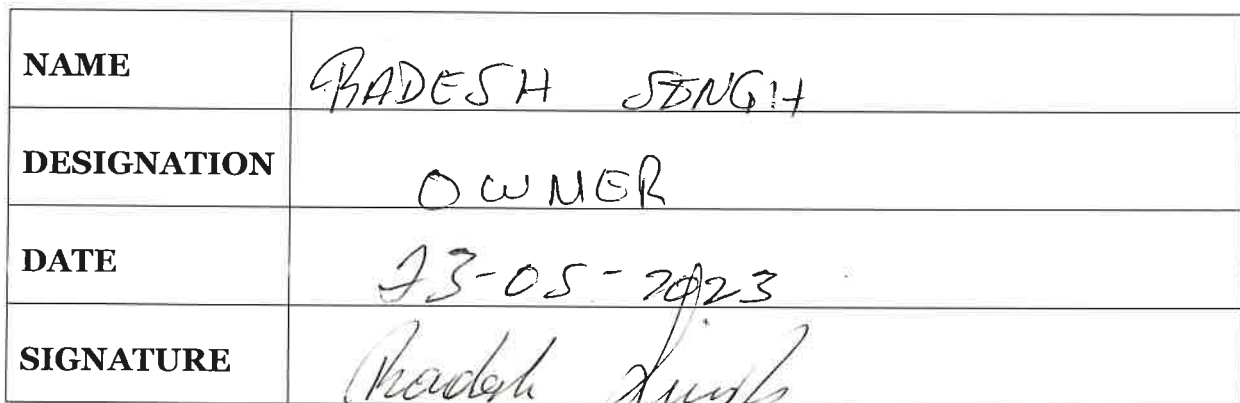 NAME RADESH SINGH
DESIGNATION OWNER
DATE 23-05-2023
SIGNATURE Radesh Singh